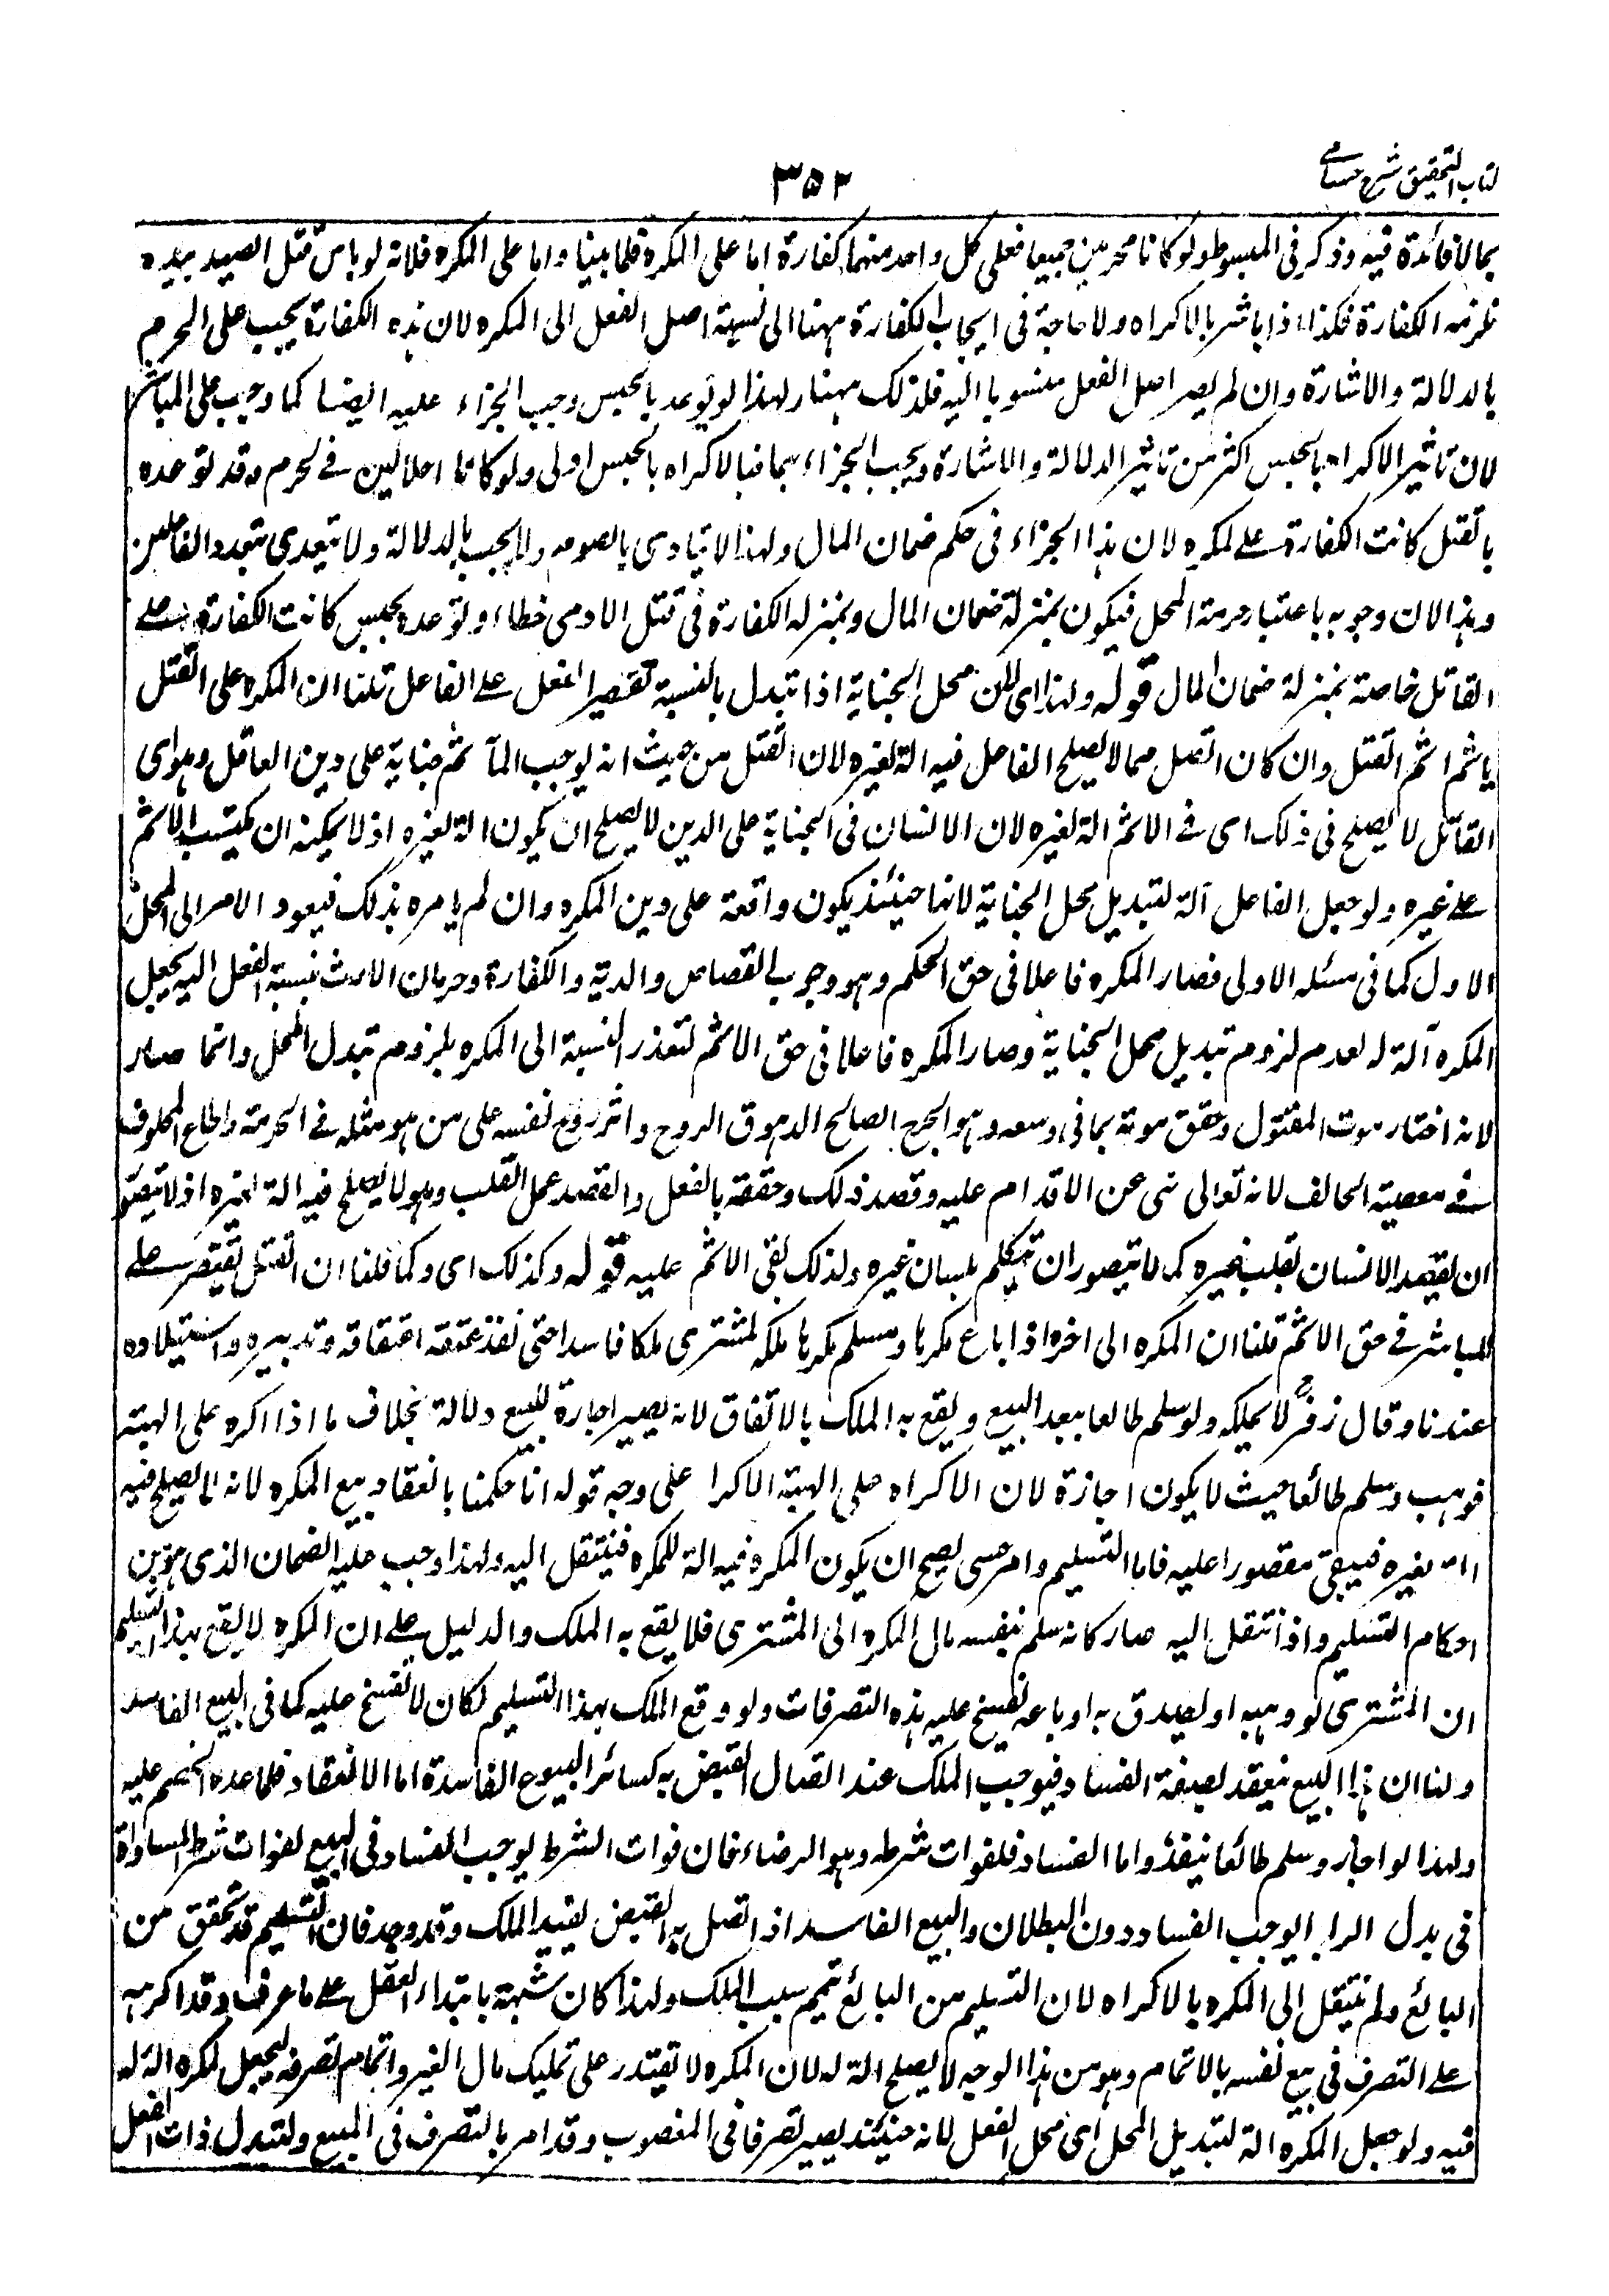 كتاب التحقيق شرح حسامى
٣٥٢
بما لا فائدة فيه وذكر فى المبسوط ولو كانا محرمين جميعا فعلى كل واحد منهما كفارة اما على المكره فلما بينا واما على المكره فلانه لو باشر قتل الصيد بيده
لزمته الكفارة فكذا اذا باشر بالاكراه ولا حاجة فى ايجاب الكفارة ههنا الى نسبة اصل الفعل الى المكره لان هذه الكفارة يجب على المحرم
بالدلالة والاشارة وان لم يصر اصل الفعل منسوبا اليه فلذلك ههنا ولهذا لو توعد بالحبس وجب الجزاء عليه ايضا كما وجب على المباشر
لان تاثير الاكراه بالحبس اكثر من تاثير الدلالة والاشارة ويجب الجزاء بهما فبالاكراه بالحبس اولى ولو كانا حلالين فى الحرم وقد توعده
بالقتل كانت الكفارة على المكره لان هذا الجزاء فى حكم ضمان المال ولهذا لا يتادى بالصوم ولا يجب بالدلالة ولا يتعدى بتعدد الفاعلين
وهذا لان وجوبه باعتبار حرمة المحل فيكون بمنزلة ضمان المال وبمنزلة الكفارة فى قتل الادمى خطاء ولو توعده بحبس كانت الكفارة على
القاتل خاصة بمنزلة ضمان المال قوله ولهذا اى لان محل الجناية اذا تبدل بالنسبة تقتصر الفعل على الفاعل قلنا ان المكره على القتل
ياثم اثم القتل وان كان القتل مما لا يصلح الفاعل فيه الة لغيره لان القتل من حيث انه يوجب المآثم جناية على دين العاقل وهو اى
القاتل لا يصلح فى ذلك اى فى الاثم الة لغيره لان الانسان فى الجناية على الدين لا يصلح ان يكون الة لغيره اذ لا يمكنه ان يكتسب الاثم
على غيره ولو جعل الفاعل آلة لتبديل محل الجناية لانها حينئذ يكون واقعة على دين المكره وان لم يامره بذلك فيعود الامر الى المحل
الاول كما فى مسئلة الاولى فصار المكره فاعلا فى حق الحكم وهو وجوب القصاص والدية والكفارة وحرمان الارث نسبة الفعل اليه يجعل
المكره آلة له لعدم لزوم تبديل محل الجناية وصار المكره فاعلا فى حق الاثم لتعذر النسبة الى المكره بلزوم تبدل المحل وانما صار
لانه اختار موت المقتول وحقق موته بما فى وسعه وهو الجرح الصالح الدهوق الروح واثر روح نفسه على من هو مثله فى الحرمة واطاع المخلوق
فى معصية الخالف لانه تعالى نهى عن الاقدام عليه وقصد ذلك وحققه بالفعل والقصد عمل القلب وهو لا يصلح فيه الة لغيره اذ لا يتصور
ان يقصد الانسان بقلب غيره كما لا يتصور ان يتكلم بلسان غيره ولذلك بقى الاثم عليه قوله وكذلك اى وكما قلنا ان القتل يقتصر على
المباشر فى حق الاثم قلنا ان المكره الى اخره اذا باع مكرها وسلم مكرها ملكه المشترى ملكا فاسدا حتى نفذ عتقه اعتقاقه وتدبيره واستيلاده
عندنا وقال زفر لا يملكه ولو سلم طالعا بعد البيع ويقع به الملك بالاتفاق لانه يصير اجازة للبيع دلالة بخلاف ما اذا اكره على الهبة
فوهب وسلم طائعا حيث لا يكون اجازة لان الاكراه على الهبة الاكرا على وجه قوله انا حكمنا بانعقاد بيع المكره لانه لا يصلح فيه
الة لغيره فيبقى مقصورا عليه فاما التسليم وامر حسى يصح ان يكون المكره فيه الة للمكره فينتقل اليه ولهذا وجب عليه الضمان الذى هو من
احكام التسليم واذا انتقل اليه صار كانه سلم بنفسه مال المكره الى المشترى فلا يقع به الملك والدليل على ان المكره لا يقع بهذا التسليم
ان المشترى لو وهبه او تصدق به او باعه يفسخ عليه هذه التصرفات ولو وقع الملك بهذا التسليم لكان لا تفسخ عليه كما فى البيع الفاسد
ولنا ان هذا البيع ينعقد بصفة الفساد فيوجب الملك عند اتصال القبض به كسائر البيوع الفاسدة اما الانعقاد فلما عده الخصم عليه
ولهذا لو اجاز وسلم طائعا ينفذ واما الفساد فلفوات شرطه وهو الرضاء فان فوات الشرط يوجب الفساد فى البيع لفوات شرط المساواة
فى بدل الربا يوجب الفساد دون البطلان والبيع الفاسد اذا اتصل به القبض يفيد الملك وقد وجد فان التسليم قد تحقق من
البائع ولم ينتقل الى المكره بالاكراه لان التسليم من البائع تتميم سبب الملك ولهذا كان شبهة بابتداء العقل على ما عرف وقد اكرهه
على التصرف فى بيع نفسه بالاتمام وهو من هذا الوجه لا يصلح الة له لان المكره لا تقتدر على تمليك مال الغير واتمام تصرفه ليجعل المكره الة له
فيه ولو جعل المكره الة لتبديل المحل اى محل الفعل لانه حينئذ يصير تصرفا فى المغصوب وقد امر بالتصرف فى المبيع ولتبدل ذات الفعل